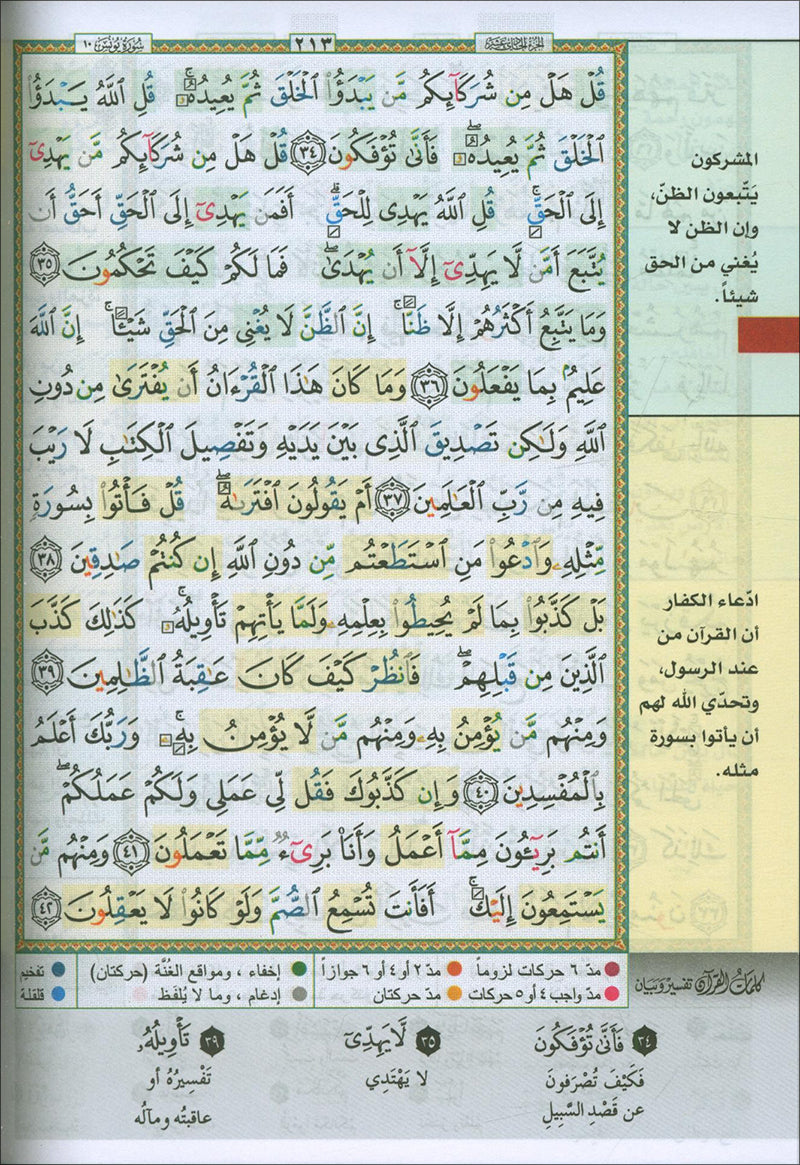 سُورَةُ يُونُسَ ١٠
٢١٣
الجزء الحادي عشر
قُلْ هَلْ مِن شُرَكَآئِكُم مَّن يَبْدَؤُا۟ ٱلْخَلْقَ ثُمَّ يُعِيدُهُۥ ۚ قُلِ ٱللَّهُ يَبْدَؤُا۟
ٱلْخَلْقَ ثُمَّ يُعِيدُهُۥ ۖ فَأَنَّىٰ تُؤْفَكُونَ ٣٤ قُلْ هَلْ مِن شُرَكَآئِكُم مَّن يَهْدِىٓ
إِلَى ٱلْحَقِّ ۚ قُلِ ٱللَّهُ يَهْدِى لِلْحَقِّ ۗ أَفَمَن يَهْدِىٓ إِلَى ٱلْحَقِّ أَحَقُّ أَن
يُتَّبَعَ أَمَّن لَّا يَهِدِّىٓ إِلَّآ أَن يُهْدَىٰ ۖ فَمَا لَكُمْ كَيْفَ تَحْكُمُونَ ٣٥
وَمَا يَتَّبِعُ أَكْثَرُهُمْ إِلَّا ظَنًّا ۚ إِنَّ ٱلظَّنَّ لَا يُغْنِى مِنَ ٱلْحَقِّ شَيْـًٔا ۚ إِنَّ ٱللَّهَ
عَلِيمٌۢ بِمَا يَفْعَلُونَ ٣٦ وَمَا كَانَ هَٰذَا ٱلْقُرْءَانُ أَن يُفْتَرَىٰ مِن دُونِ
ٱللَّهِ وَلَٰكِن تَصْدِيقَ ٱلَّذِى بَيْنَ يَدَيْهِ وَتَفْصِيلَ ٱلْكِتَٰبِ لَا رَيْبَ
فِيهِ مِن رَّبِّ ٱلْعَٰلَمِينَ ٣٧ أَمْ يَقُولُونَ ٱفْتَرَىٰهُ ۖ قُلْ فَأْتُوا۟ بِسُورَةٍ
مِّثْلِهِۦ وَٱدْعُوا۟ مَنِ ٱسْتَطَعْتُم مِّن دُونِ ٱللَّهِ إِن كُنتُمْ صَٰدِقِينَ ٣٨
بَلْ كَذَّبُوا۟ بِمَا لَمْ يُحِيطُوا۟ بِعِلْمِهِۦ وَلَمَّا يَأْتِهِمْ تَأْوِيلُهُۥ ۚ كَذَٰلِكَ كَذَّبَ
ٱلَّذِينَ مِن قَبْلِهِمْ ۖ فَٱنظُرْ كَيْفَ كَانَ عَٰقِبَةُ ٱلظَّٰلِمِينَ ٣٩
وَمِنْهُم مَّن يُؤْمِنُ بِهِۦ وَمِنْهُم مَّن لَّا يُؤْمِنُ بِهِۦ ۚ وَرَبُّكَ أَعْلَمُ
بِٱلْمُفْسِدِينَ ٤٠ وَإِن كَذَّبُوكَ فَقُل لِّى عَمَلِى وَلَكُمْ عَمَلُكُمْ ۖ
أَنتُم بَرِيٓـُٔونَ مِمَّآ أَعْمَلُ وَأَنَا۠ بَرِىٓءٌ مِّمَّا تَعْمَلُونَ ٤١ وَمِنْهُم مَّن
يَسْتَمِعُونَ إِلَيْكَ ۚ أَفَأَنتَ تُسْمِعُ ٱلصُّمَّ وَلَوْ كَانُوا۟ لَا يَعْقِلُونَ ٤٢
المشركون
يَتّبعون الظنّ،
وإن الظن لا
يُغني من الحق
شيئاً.
ادّعاء الكفار
أن القرآن من
عند الرسول،
وتحدّي الله لهم
أن يأتوا بسورة
مثله.
مدّ ٦ حركات لزوماً
مدّ ٢ أو ٤ أو ٦ جوازاً
إخفاء، ومواقع الغُنَّة (حركتان)
تفخيم
مدّ واجب ٤ أو ٥ حركات
مدّ حركتان
إدغام، وما لا يُلفَظ
قلقلة
كلمات القرآن تفسير وبيان
٣٤ فَأَنَّىٰ تُؤْفَكُونَ
فَكَيْفَ تُصْرَفونَ
عن قَصْدِ السَّبيلِ
٣٥ لَّا يَهِدِّىٓ
لا يَهْتَدِي
٣٩ تَأْوِيلُهُۥ
تَفْسِيرُهُ أو
عاقبتُه ومآلُه